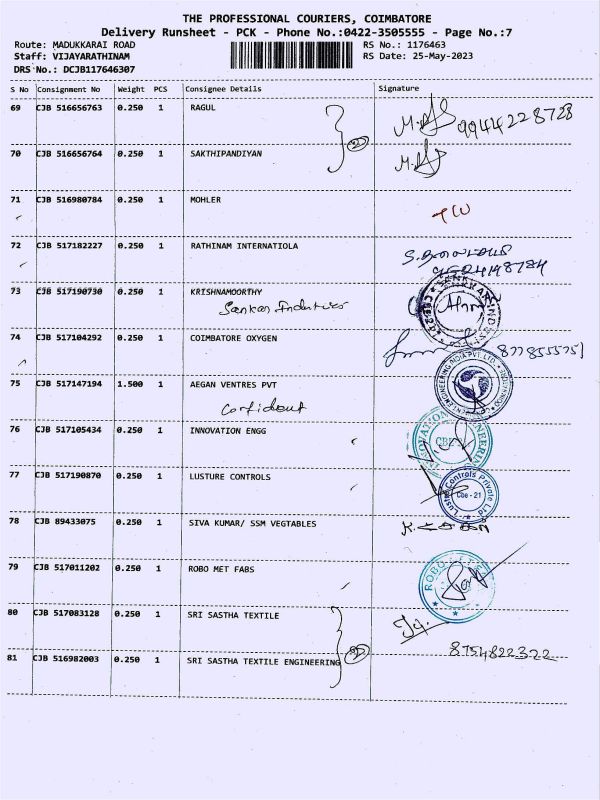 THE PROFESSIONAL COURIERS, COIMBATORE
Delivery Runsheet - PCK - Phone No.:0422-3505555 - Page No.:7
Route: MADUKKARAI ROAD RS No.: 1176463
Staff: VIJAYARATHINAM RS Date: 25-May-2023
DRS No.: DCJB117646307
S No Consignment No Weight PCS Consignee Details Signature
69 CJB 516656763 0.250 1 RAGUL
9944228728
70 CJB 516656764 0.250 1 SAKTHIPANDIYAN
2
71 CJB 516980784 0.250 1 MOHLER
72 CJB 517182227 0.250 1 RATHINAM INTERNATIOLA
73 CJB 517190730 0.250 1 KRISHNAMOORTHY
Sankar Industries
74 CJB 517104292 0.250 1 COIMBATORE OXYGEN
8778555751
75 CJB 517147194 1.500 1 AEGAN VENTRES PVT
76 CJB 517105434 0.250 1 INNOVATION ENGG
77 CJB 517190870 0.250 1 LUSTURE CONTROLS
Controls Private Ltd
Cbe - 21
78 CJB 89433075 0.250 1 SIVA KUMAR/ SSM VEGTABLES
79 CJB 517011202 0.250 1 ROBO MET FABS
ROBO
80 CJB 517083128 0.250 1 SRI SASTHA TEXTILE
8754822322
81 CJB 516982003 0.250 1 SRI SASTHA TEXTILE ENGINEERING